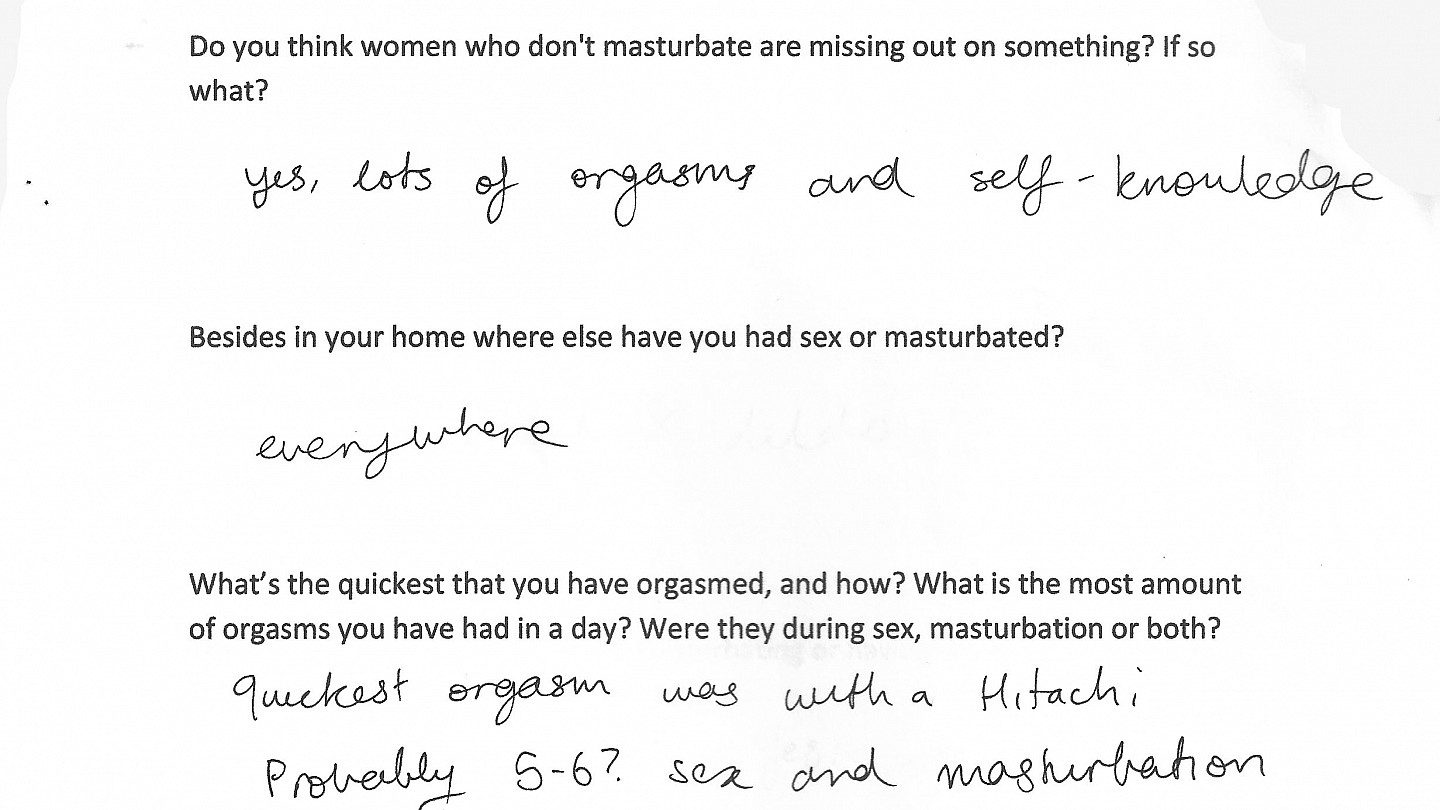 Do you think women who don't masturbate are missing out on something? If so
what?
yes, lots of orgasms and self-knowledge
Besides in your home where else have you had sex or masturbated?
everywhere
What's the quickest that you have orgasmed, and how? What is the most amount
of orgasms you have had in a day? Were they during sex, masturbation or both?
quickest orgasm was with a Hitachi
Probably 5-6? sex and masturbation